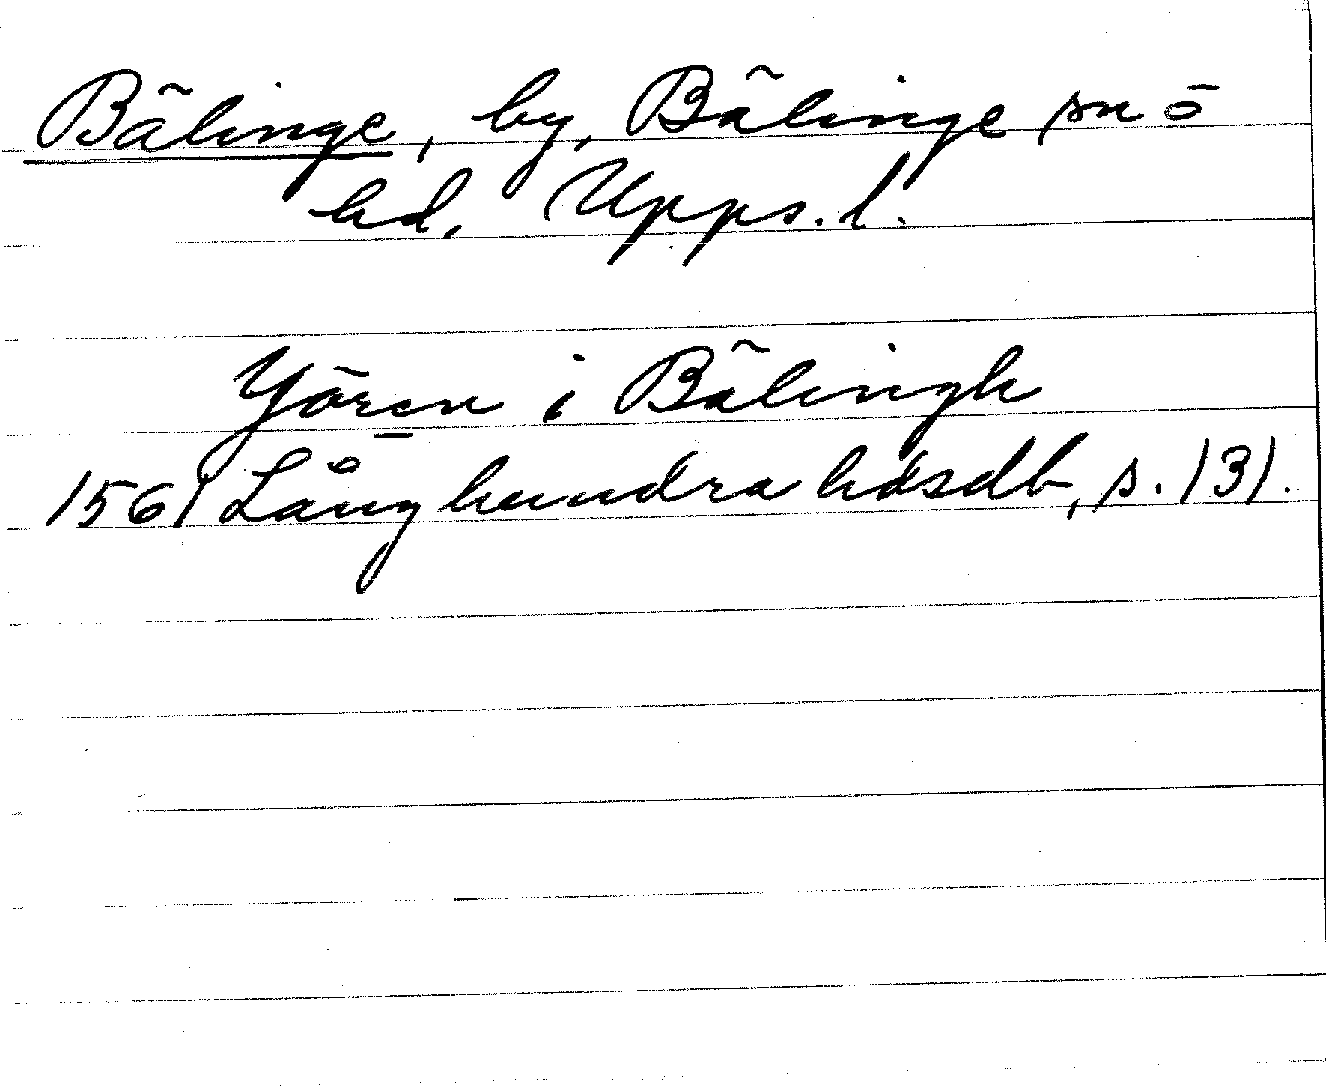 Bälinge, by, Bälinge sn o
hd, Upps. l.
Yören i Bälingh
1561 Långhundra hdsdb, s. 131.